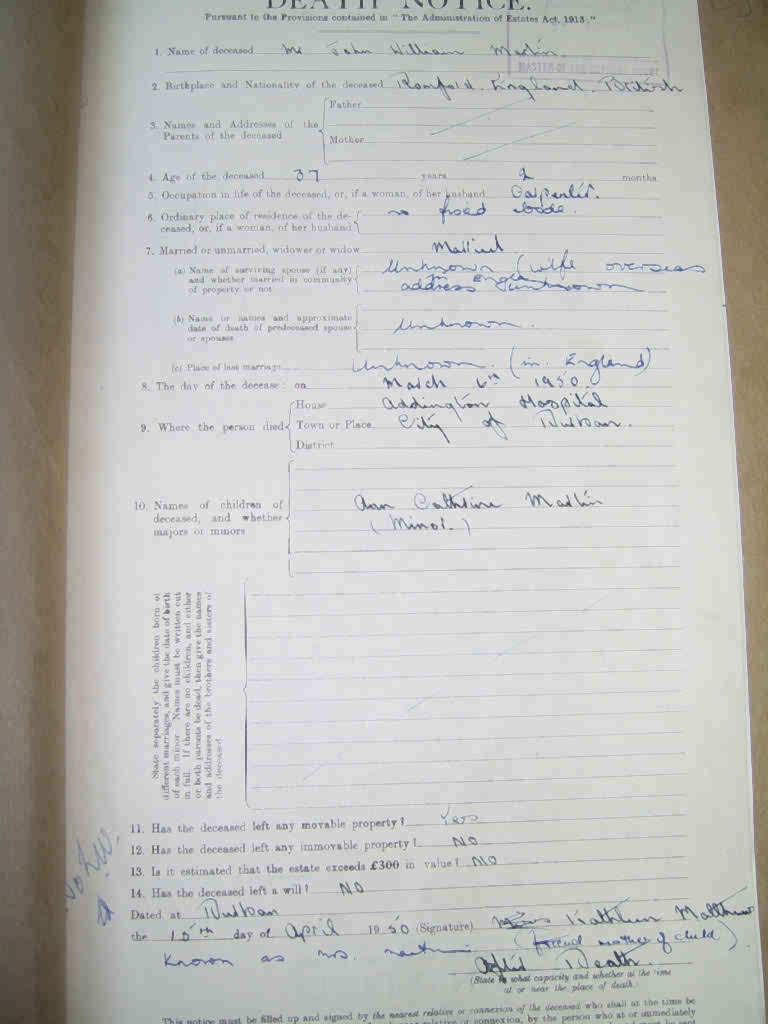 DEATH NOTICE.
Pursuant to the Provisions contained in "The Administration of Estates Act, 1913."
1. Name of deceased Mr John William Martin.
2. Birthplace and Nationality of the deceased Romford. England. British
3. Names and Addresses of the Parents of the deceased
Father
Mother
4. Age of the deceased 37 years 2 months
5. Occupation in life of the deceased, or, if a woman, of her husband Carpenter.
6. Ordinary place of residence of the deceased, or, if a woman, of her husband no fixed abode.
7. Married or unmarried, widower or widow Married
(a) Name of surviving spouse (if any) and whether married in community of property or not
Unknown (wife overseas
in England
address unknown
(b) Name or names and approximate date of death of predeceased spouse or spouses
Unknown.
(c) Place of last marriage Unknown. (in England)
8. The day of the decease: on March 6th 1950
9. Where the person died
House Addington Hospital
Town or Place City of Durban.
District
10. Names of children of deceased, and whether majors or minors
Ann Cathrine Martin
(Minor.)
State separately the children born of
different marriages, and give the date of birth
of each minor. Names must be written out
in full. If there are no children, and either
or both parents be dead, then give the names
and addresses of the brothers and sisters of
the deceased.
11. Has the deceased left any movable property? Yes
12. Has the deceased left any immovable property? NO
13. Is it estimated that the estate exceeds £300 in value? NO
14. Has the deceased left a will? NO
Dated at Durban
the 15th day of April 1950 (Signature) Kathleen
Known as mrs. (friend mother of child)
Death.
(State in what capacity and whether at the time
or near the place of death.)
This notice must be filled up and signed by the nearest relative or connexion of the deceased who shall at the time be
relative or connexion, by the person who at or immediately